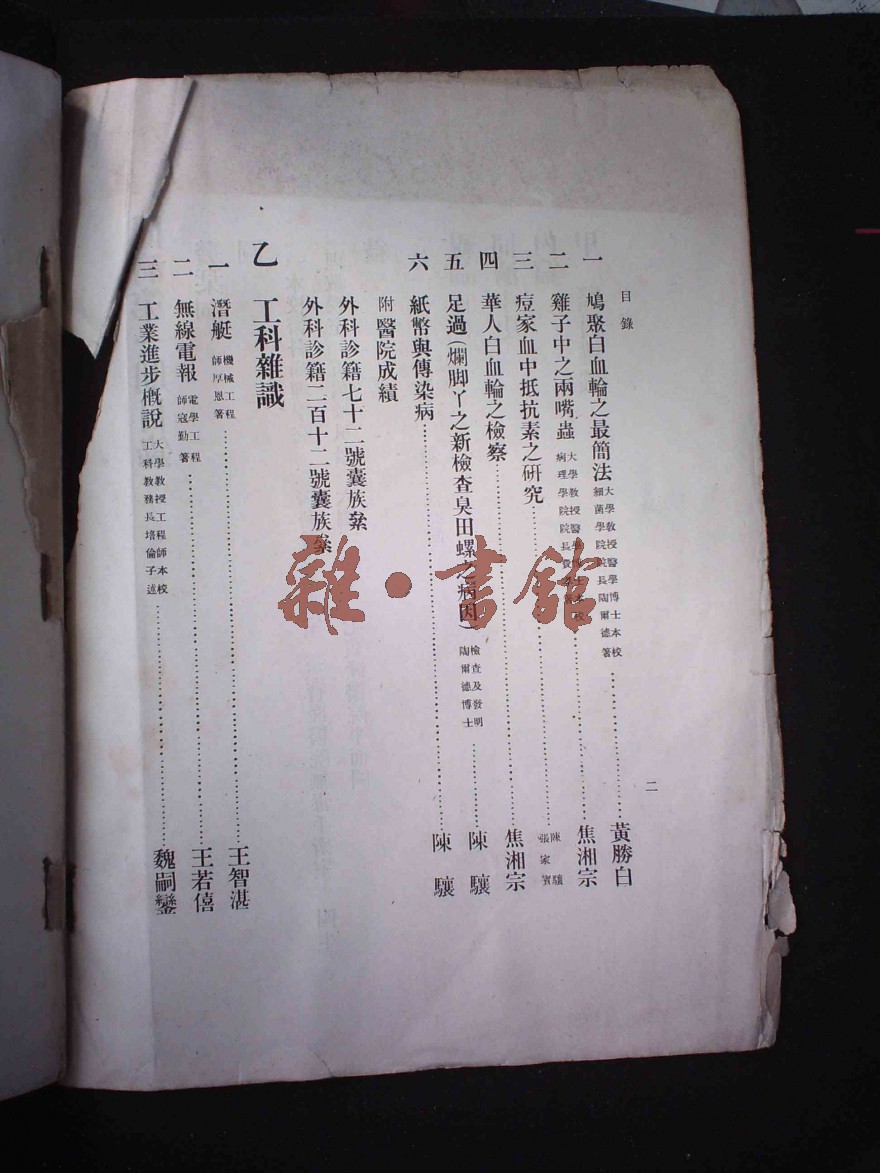 目錄
二
一 鳩聚白血輪之最簡法 大學教授醫學博士本校細菌學院院長陶爾德著 黃勝白
二 雞子中之兩嘴蟲 大學教授醫學博士本校病理學院院長 焦湘宗
三 痘家血中抵抗素之研究 陳驤 張家賓
四 華人白血輪之檢察 焦湘宗
五 足過(爛脚丫之新檢查臭田螺之病因) 檢查及發明陶爾德博士 陳驤
六 紙幣與傳染病 陳驤
附 醫院成績
外科診籍七十二號囊族粂
外科診籍二百十二號囊族粂
乙 工科雜識
一 潛艇 機械工程師厚恩著 王智湛
二 無線電報 電學工程師寇勤著 王若僖
三 工業進步概說 大學教授工程師本校工科教務長培倫子述 魏嗣鑾
雜·書館